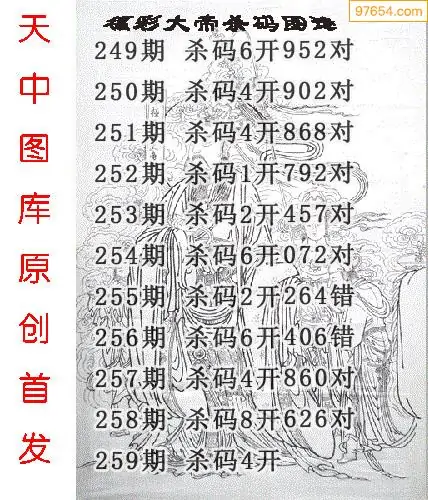 97654.com
福彩大帝杀码图迷
249期 杀码6开952对
250期 杀码4开902对
251期 杀码4开868对
252期 杀码1开792对
253期 杀码2开457对
254期 杀码6开072对
255期 杀码2开264错
256期 杀码6开406错
257期 杀码4开860对
258期 杀码8开626对
259期 杀码4开
天中图库原创首发